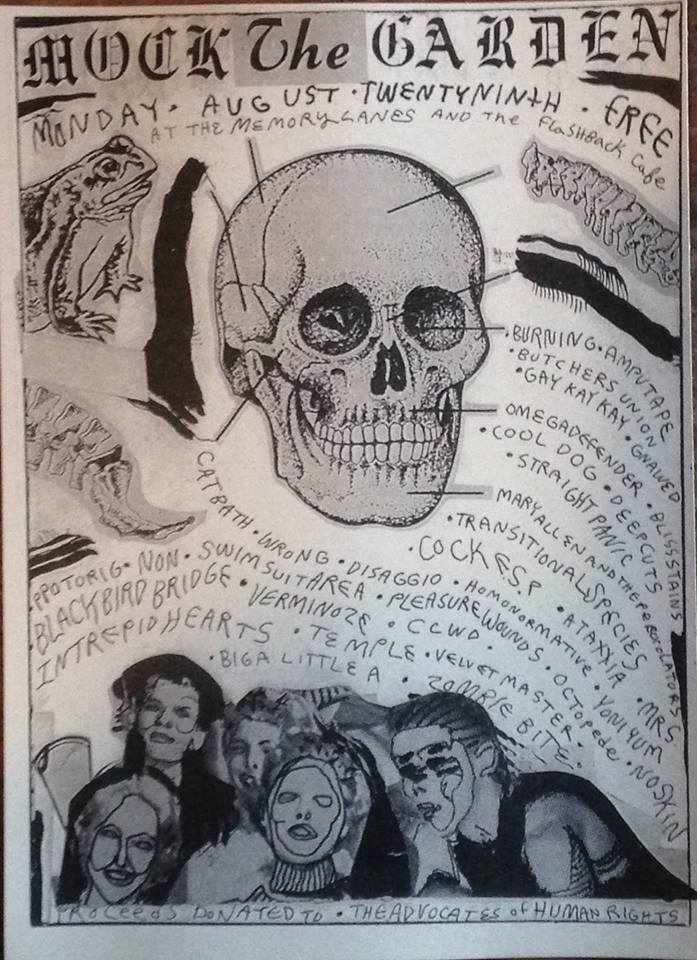 MOCK The GARDEN
MONDAY · AUGUST · TWENTYNINTH · FREE
AT THE MEMORY LANES AND THE FLASHBACK Cafe
· BURNING · AMPUTAPE
· BUTCHERS UNION
· GAY KAY KAY · GNAWED
OMEGADEFENDER · BLISS STAINS
· COOL DOG · DEEPCUTS
· STRAIGHT PANIC
MARY ALLEN AND THE PERCOLATORS
· TRANSITIONAL SPECIES
· COCK E.S.P · ATAXXIA · MRS
CATBATH · WRONG · DISAGGIO · HOMONORMATIVE · YONI YUM
PROTORIG · NON · SWIMSUIT AREA · PLEASURE WOUNDS · OCTOPEDE · NO SKIN
BLACKBIRD BRIDGE · VERMINOZE · CCWD · VELVET MASTER ·
INTREPID HEARTS · TEMPLE · ZOMBIE BITE ·
· BIG A LITTLE A
PROCEEDS DONATED TO · THE ADVOCATES of HUMAN RIGHTS